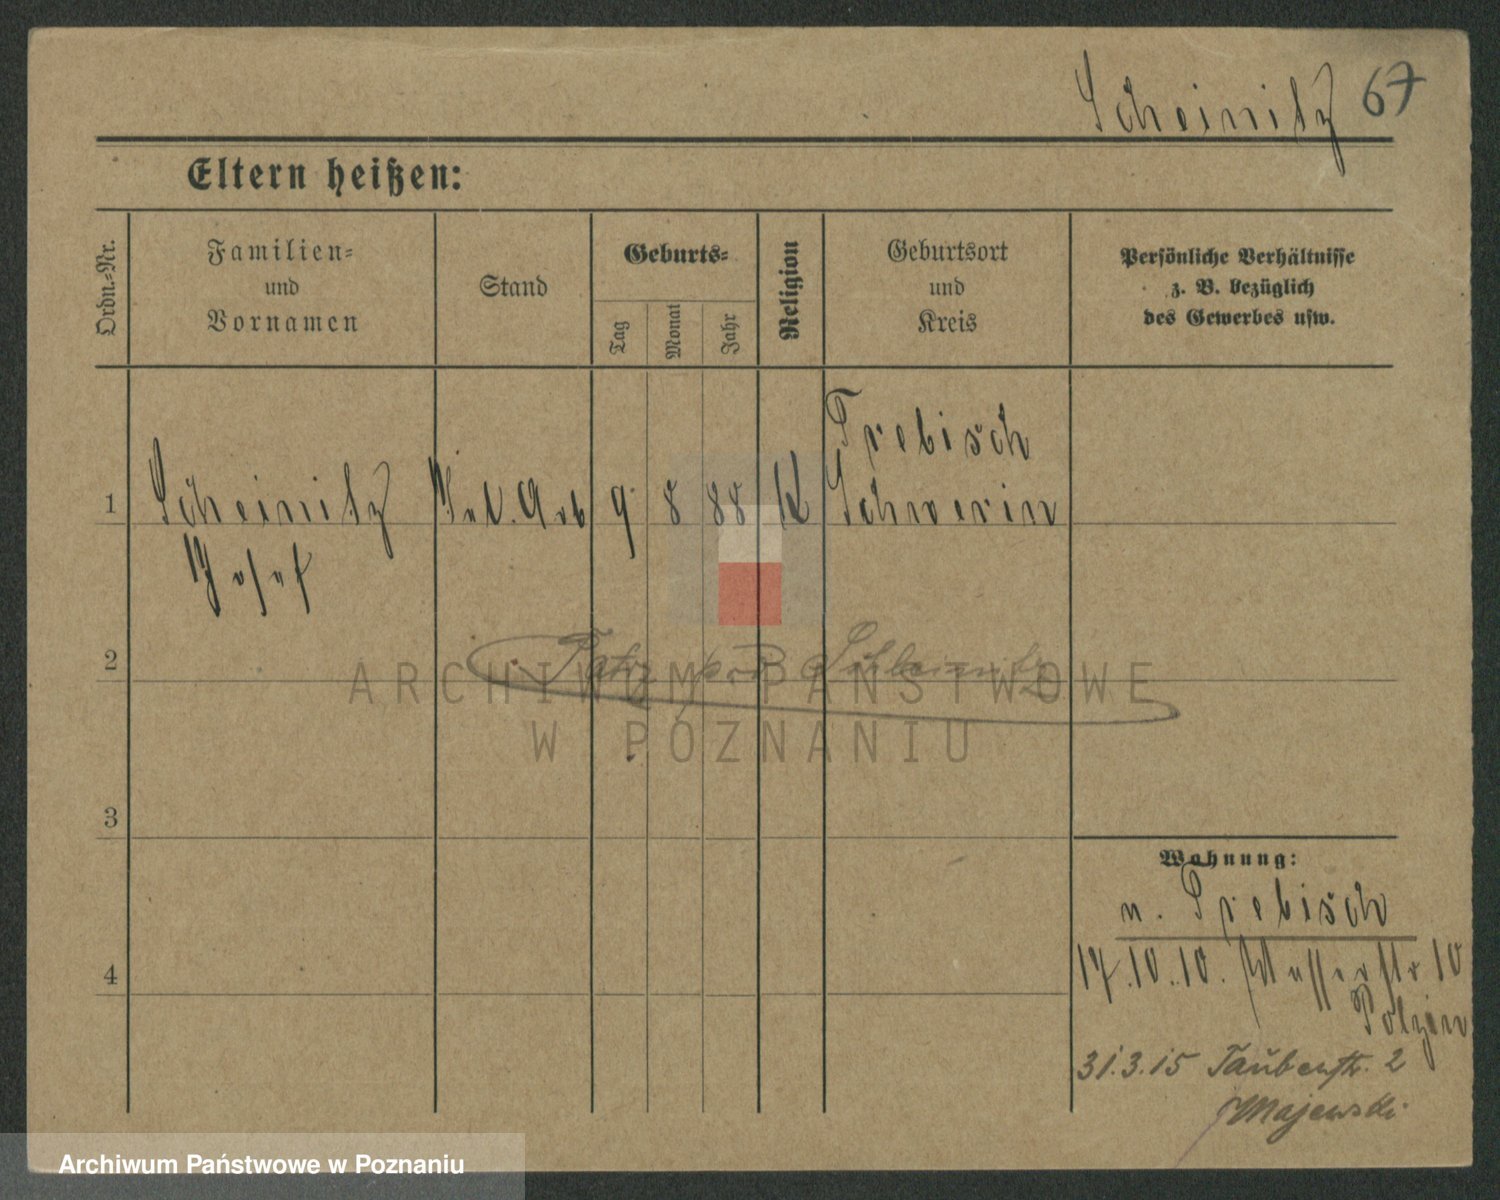 Scheinitz 67
Eltern heißen:
Ordn.-Nr.
Familien-
und
Vornamen
Stand
Geburts-
Tag
Monat
Jahr
Religion
Geburtsort
und
Kreis
Persönliche Verhältnisse
z. B. bezüglich
des Gewerbes usw.
Trebisch
1 Scheinitz Arb 9. 8 88 K Schwerin
Josef
2
ARCHIWUM PAŃSTWOWE
W POZNANIU
3
Wohnung:
n. Trebisch
4
17.10.10. Wasserstr 10
Polzin
31.3.15 Taubenstr. 2
Majewski
Archiwum Państwowe w Poznaniu